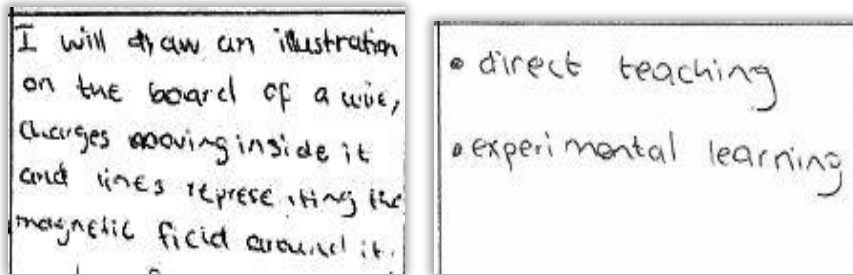 I will draw an illustration
on the board of a wire,
charges moving inside it
and lines representing the
magnetic field around it.
• direct teaching
• experimental learning